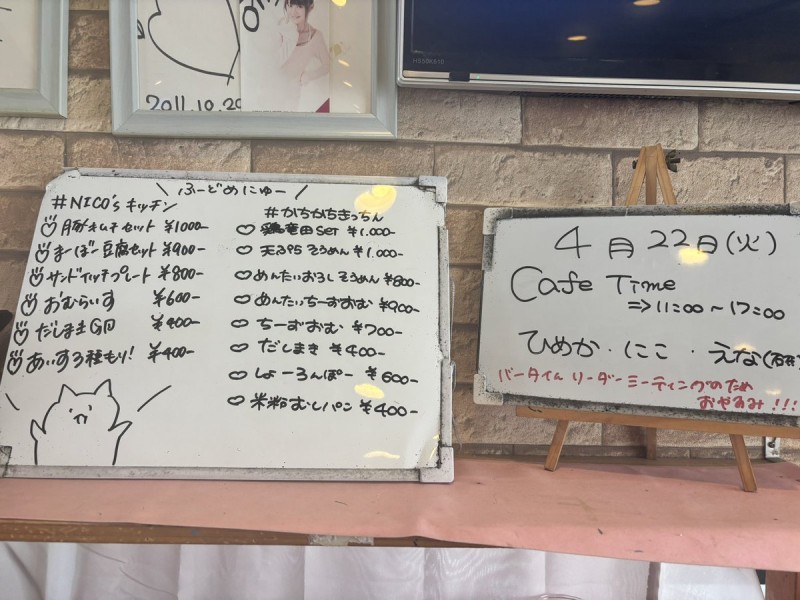 2011.10.29
HS50K610
ふーどめにゅー
#NICO'sキッチン
豚キムチセット ¥1000-
まーぼー豆腐セット ¥900-
サンドイッチプレート ¥800-
おむらいす ¥600-
だしまき ¥400-
あいす3種もり! ¥400-
#かちかちきっちん
鶏竜田set ¥1.000-
天ぷらそうめん ¥1.000-
めんたいおろしそうめん ¥800-
めんたいちーずおむ ¥900-
ちーずおむ ¥700-
だしまき ¥400-
しょーろんぽー ¥600-
米粉むしパン ¥400-
4月22日(火)
Cafe Time
⇒11:00～17:00
ひめか・にこ・えな
バータイム リーダーミーティングのため
おやすみ!!!